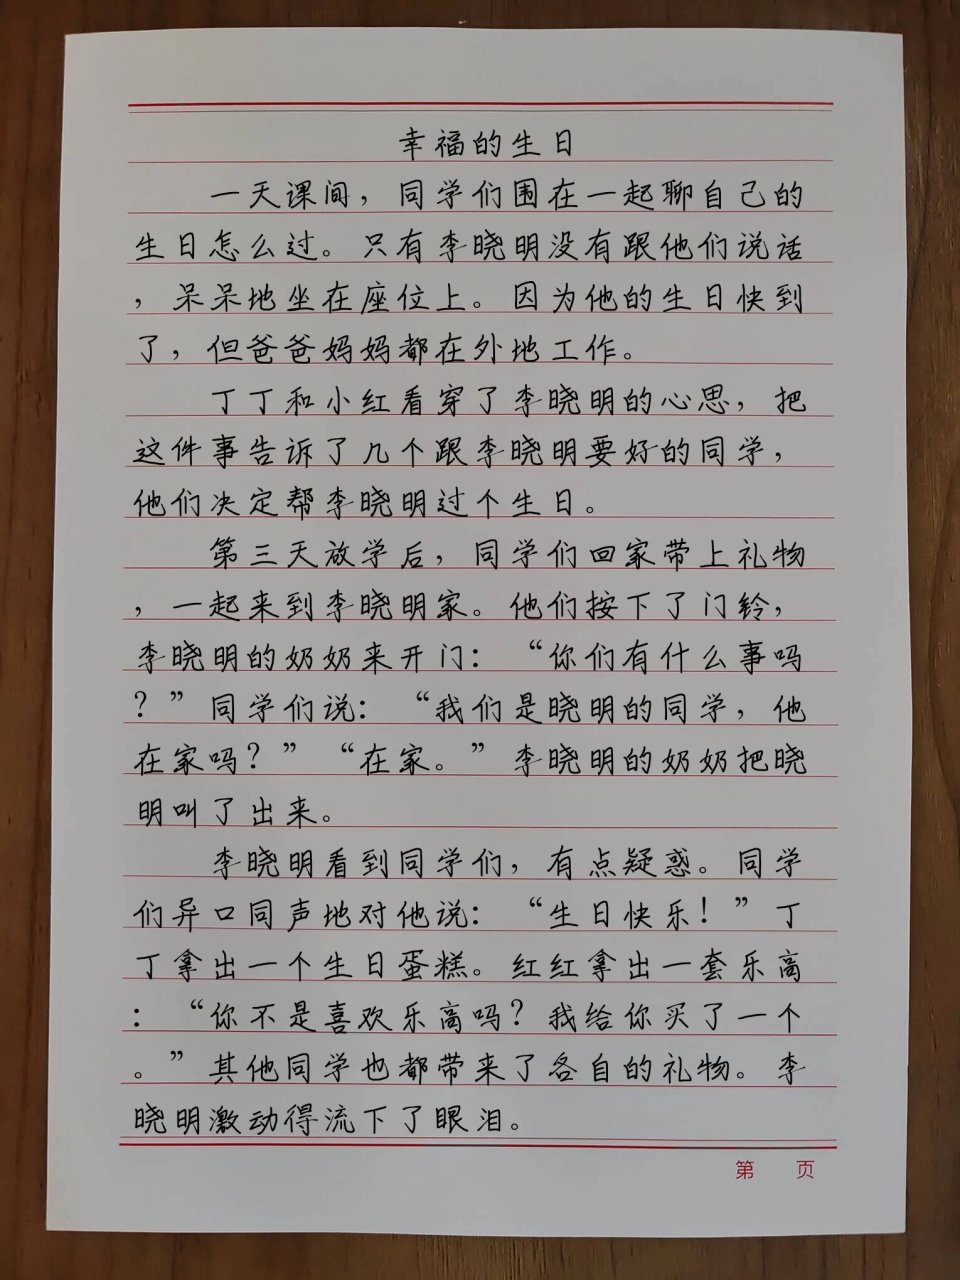 幸福的生日
一天课间，同学们围在一起聊自己的
生日怎么过。只有李晓明没有跟他们说话
，呆呆地坐在座位上。因为他的生日快到
了，但爸爸妈妈都在外地工作。
丁丁和小红看穿了李晓明的心思，把
这件事告诉了几个跟李晓明要好的同学，
他们决定帮李晓明过个生日。
第三天放学后，同学们回家带上礼物
，一起来到李晓明家。他们按下了门铃，
李晓明的奶奶来开门：“你们有什么事吗
？”同学们说：“我们是晓明的同学，他
在家吗？”“在家。”李晓明的奶奶把晓
明叫了出来。
李晓明看到同学们，有点疑惑。同学
们异口同声地对他说：“生日快乐！”丁
丁拿出一个生日蛋糕。红红拿出一套乐高
：“你不是喜欢乐高吗？我给你买了一个
。”其他同学也都带来了各自的礼物。李
晓明激动得流下了眼泪。
第 页